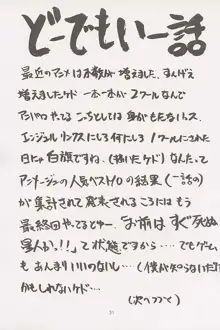 どーでもいー話
最近のアニメは本数が増えました。すんげえ
増えましたケド 一本一本が2クールなんで
アニパロやってる こっちとしては 身がもたないッス。
エンジェルリンクスにしろ何にしろ 1クールにされた
日にゃ白旗ですね。(描いたケド) なんたって
アニメージュの人気ベスト10の結果 (一話の)
が集計されて発表される ころには もう
最終回やってるとゆー、「お前はすぐ死ぬ
軍人か!!」って状態ですから… でもゲーム
もあんまりいいのないし… (僕が知らないだけ
かもしれないケド…
(次へつづく)
31